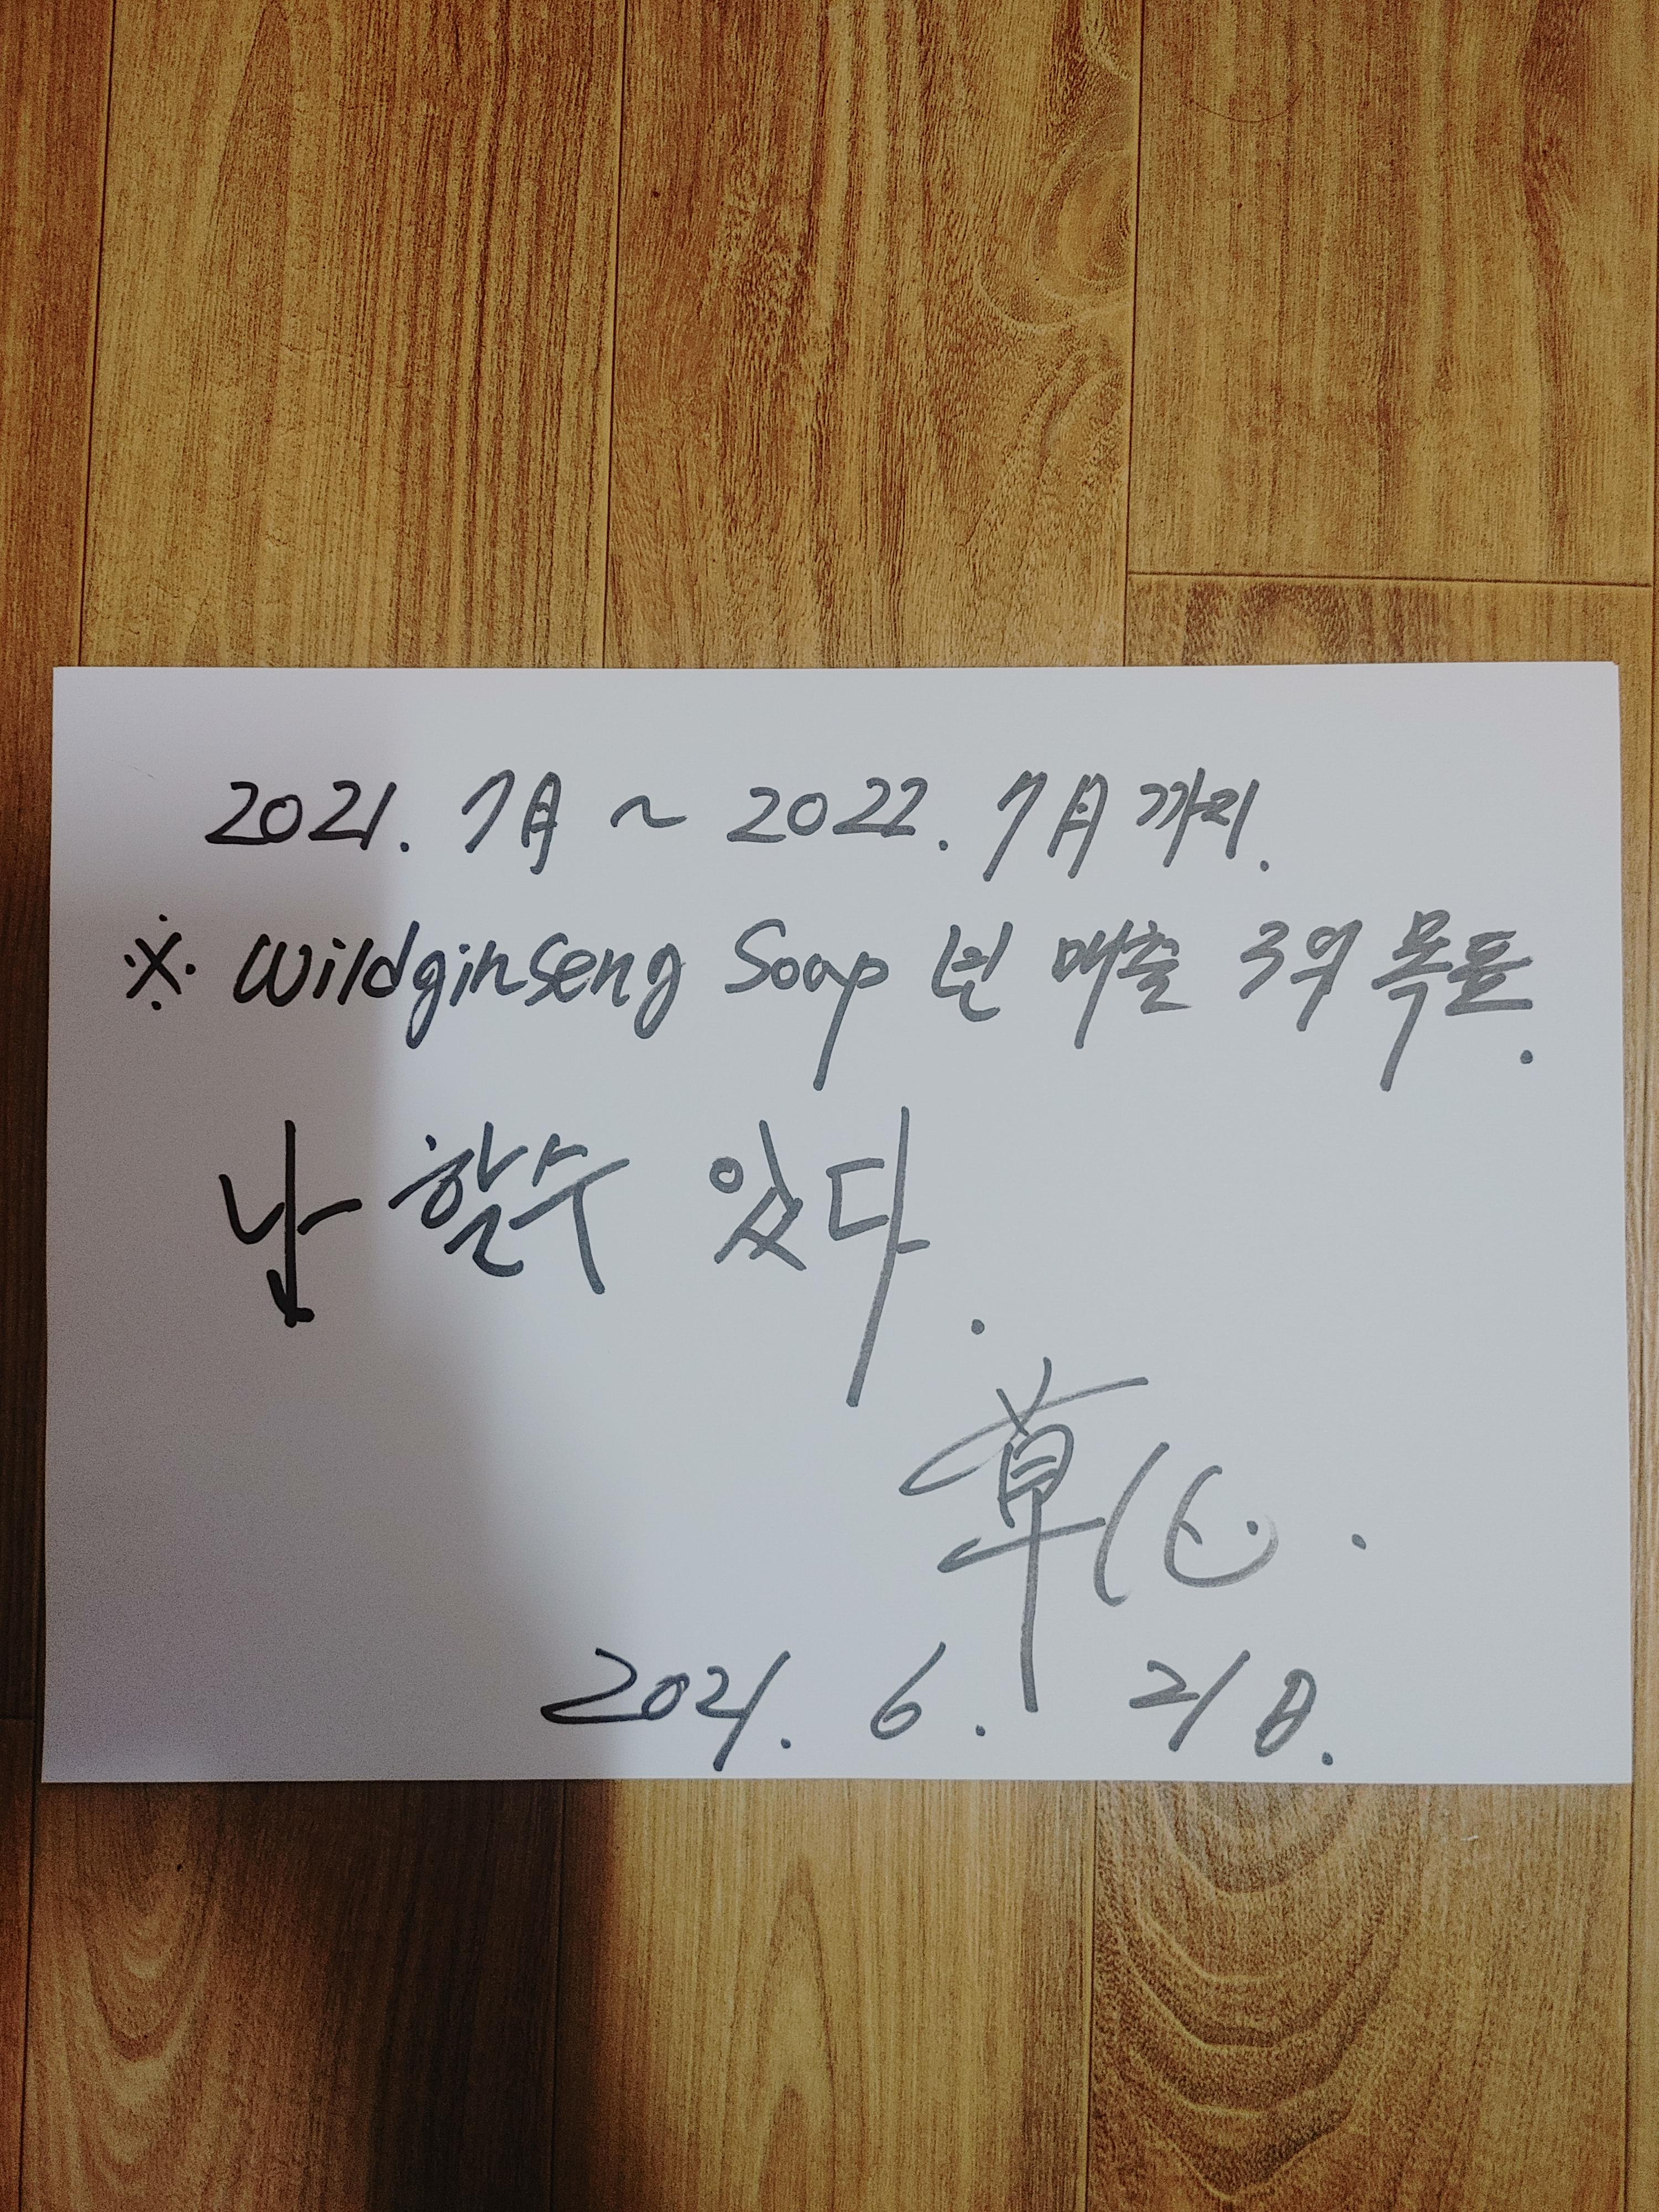 2021. 7月 ~ 2022. 7月 까지.
※ Wildginseng Soap 년 매출 3위 목표.
난 할수 있다.
草化.
2021. 6. 21日.